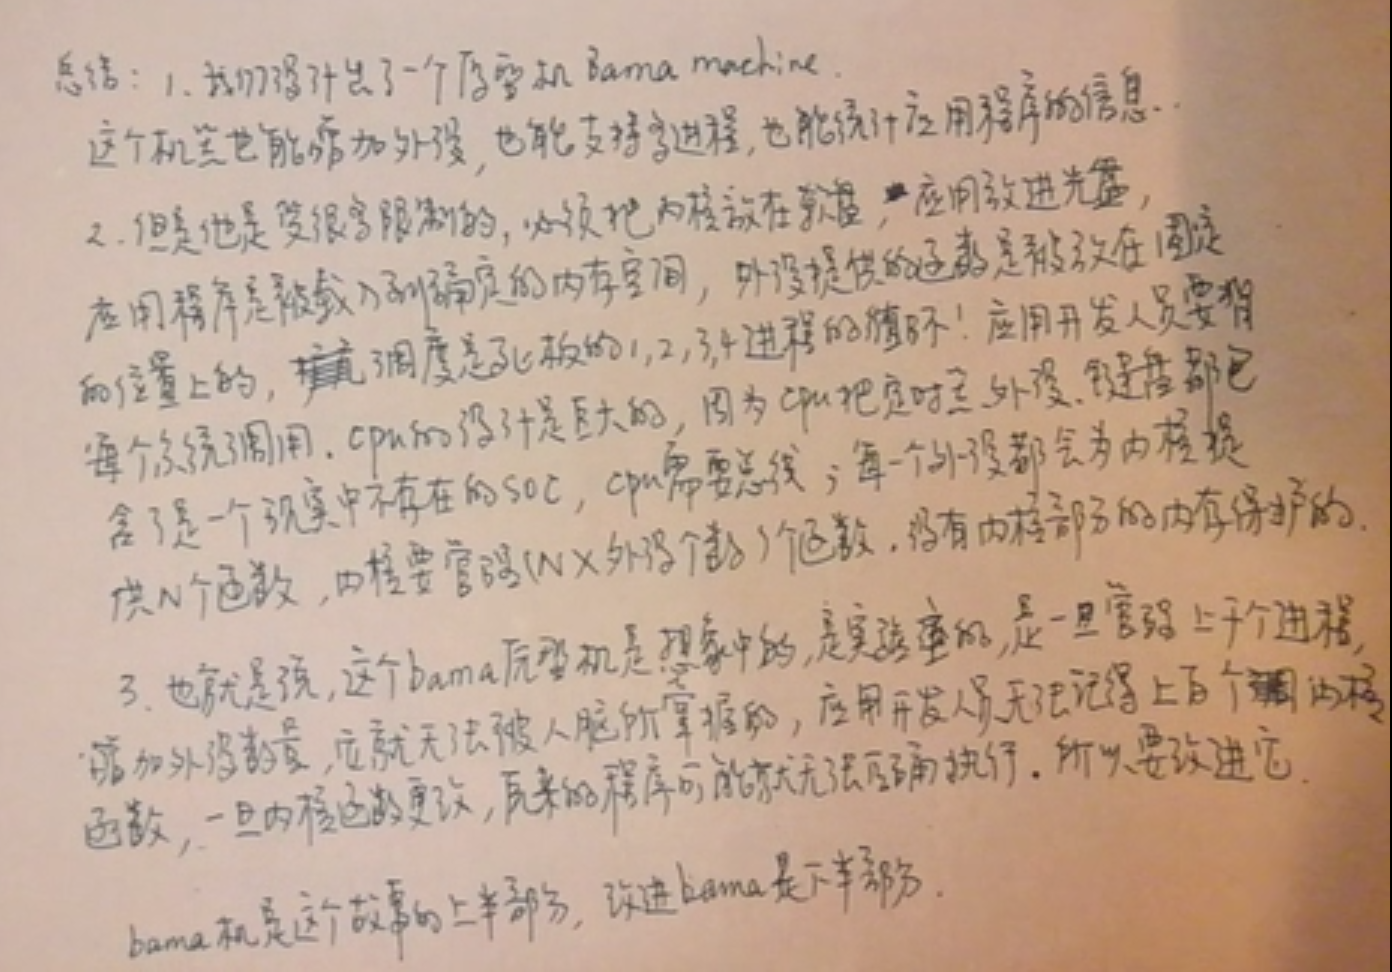 总结：1. 我们设计出了一个原型机 Bama machine.
这个机器也能增加外设，也能支持多进程，也能统计应用程序的信息.
2. 但是他是受很多限制的，必须把内核放在软盘，应用放进光盘，
应用程序是被载入到确定的内存空间，外设提供的函数是被放在固定
的位置上的，调度是死板的1,2,3,4进程的循环！应用开发人员要背
每个系统调用. cpu的设计是巨大的，因为cpu把定时器、外设、键盘都包
含了是一个现实中不存在的SOC，cpu需要总线；每一个外设都会为内核提
供N个函数，内核要管理(N×外设个数)个函数. 没有内核部分的内存保护的.
3. 也就是说，这个bama原型机是想象中的，是实验室的，是一旦管理上千个进程，
增加外设数量，它就无法被人脑所掌握的，应用开发人员无法记得上百个内核
函数，一旦内核函数更改，原来的程序可能就无法正确执行. 所以要改进它.
bama机是这个故事的上半部分，改进bama是下半部分.